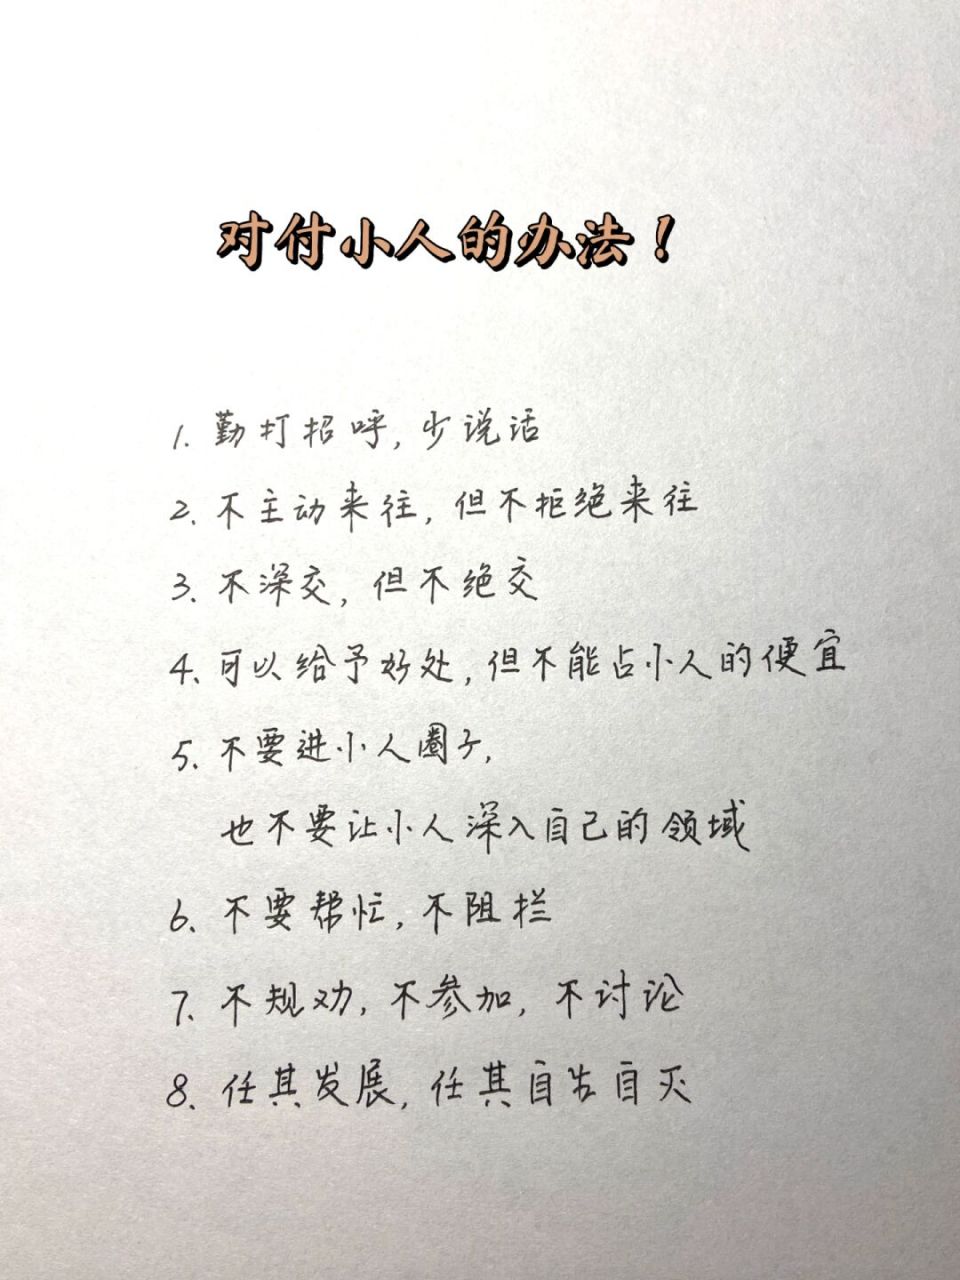 对付小人的办法！
1. 勤打招呼，少说话
2. 不主动来往，但不拒绝来往
3. 不深交，但不绝交
4. 可以给予好处，但不能占小人的便宜
5. 不要进小人圈子，
也不要让小人深入自己的领域
6. 不要帮忙，不阻拦
7. 不规劝，不参加，不讨论
8. 任其发展，任其自生自灭